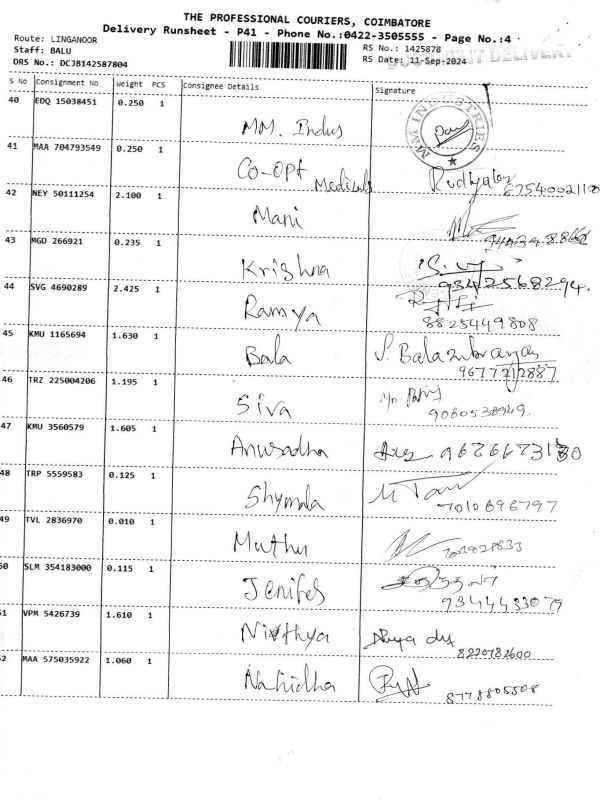 THE PROFESSIONAL COURIERS, COIMBATORE
Delivery Runsheet - P41 - Phone No.:0422-3505555 - Page No.:4
Route: LINGANOOR
Staff: BALU
DRS No.: DCJB142587804
RS No.: 1425878
RS Date: 11-Sep-2024
S No Consignment No Weight PCS Consignee Details Signature
40 EDQ 15038451 0.250 1
MM. Indus
MM INDUSTRIES
41 MAA 704793549 0.250 1
Co-opt Medicals
42 NEY 50111254 2.100 1
Mani
43 MGD 266921 0.235 1
Krishna
9342568294.
44 SVG 4690289 2.425 1
Ramya
8825449808
45 KMU 1165694 1.630 1
Bala
9677212887
46 TRZ 225004206 1.195 1
Siva
9080538949.
47 KMU 3560579 1.605 1
Anusadha
48 TRP 5559583 0.125 1
Shymala
7010696797
49 TVL 2836970 0.010 1
Muthu
50 SLM 354183000 0.115 1
Jenifes
9344433079
51 VPM 5426739 1.610 1
Nivthya
8220782600
52 MAA 575035922 1.060 1
Nahidha
8778805508